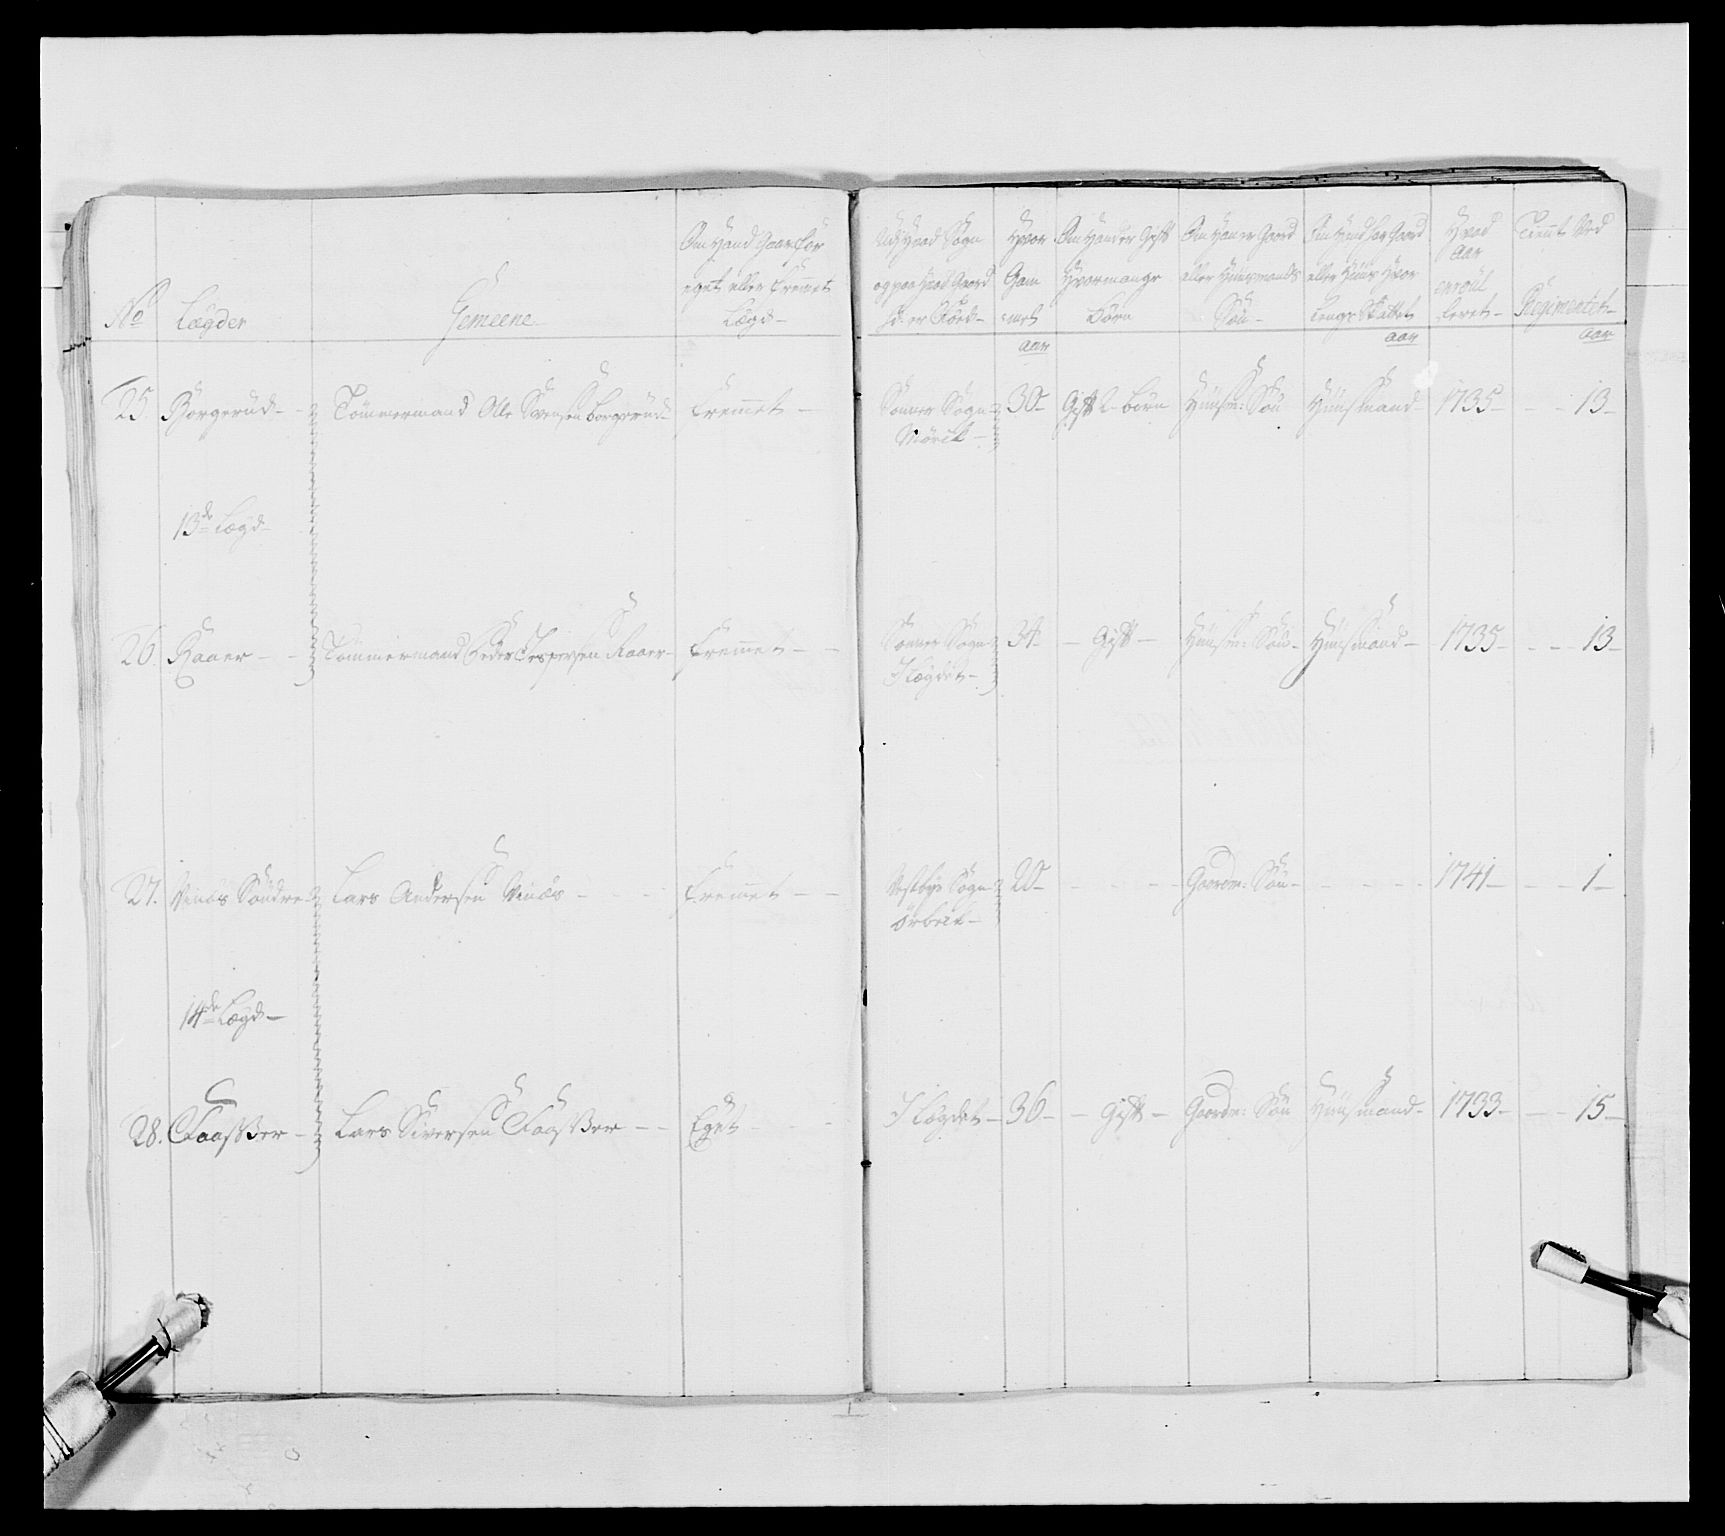 No Lægder Gemeene
Om Hand Gaar for
eget eller fremmet
Lægd-
Udj Hvad Sogn
og paa hvad Gaard
hd: er Föed-
Hvor
Gam
:met
aar
Om Hand er Gift
Hvormange
Börn
Om Han er Gaard
eller Huusmands
Sön-
Om Hand har Gaard
eller Huus Hvor
Lenge Skattet
aar
Hvad
aar
enroul
leret-
Tient Ved
Regimentet-
aar
25. Borgerud- Tömmermand Olle Svensen Borgerud- fremmet - Sonner Sogn Mörck - 30- Gift 2- börn Huusm: Sön Huusmand- 1735- - - 13-
13de Lægd-
26. Raaer - - Tömmermand Peder Jespersen Raaer- fremmet - - Sonner Sogn I Lægdet- 34- - Gift - Huusm: Sön- Huusmand- 1735- - - - 13-
27. Vinæs Söndre Lars Andersen Vinæs - - - fremmet - - Vestbye Sogn Örbeck- 20- - - - - Gaardm: Sön- - - - - 1741- - - - 1-
14de Lægd-
28. Faasßer - Lars Siversen Faasßer - - Eget - - I Lægdet- 36- - Gift - Gaardm: Sön Huusmand- 1733- - - - 15-